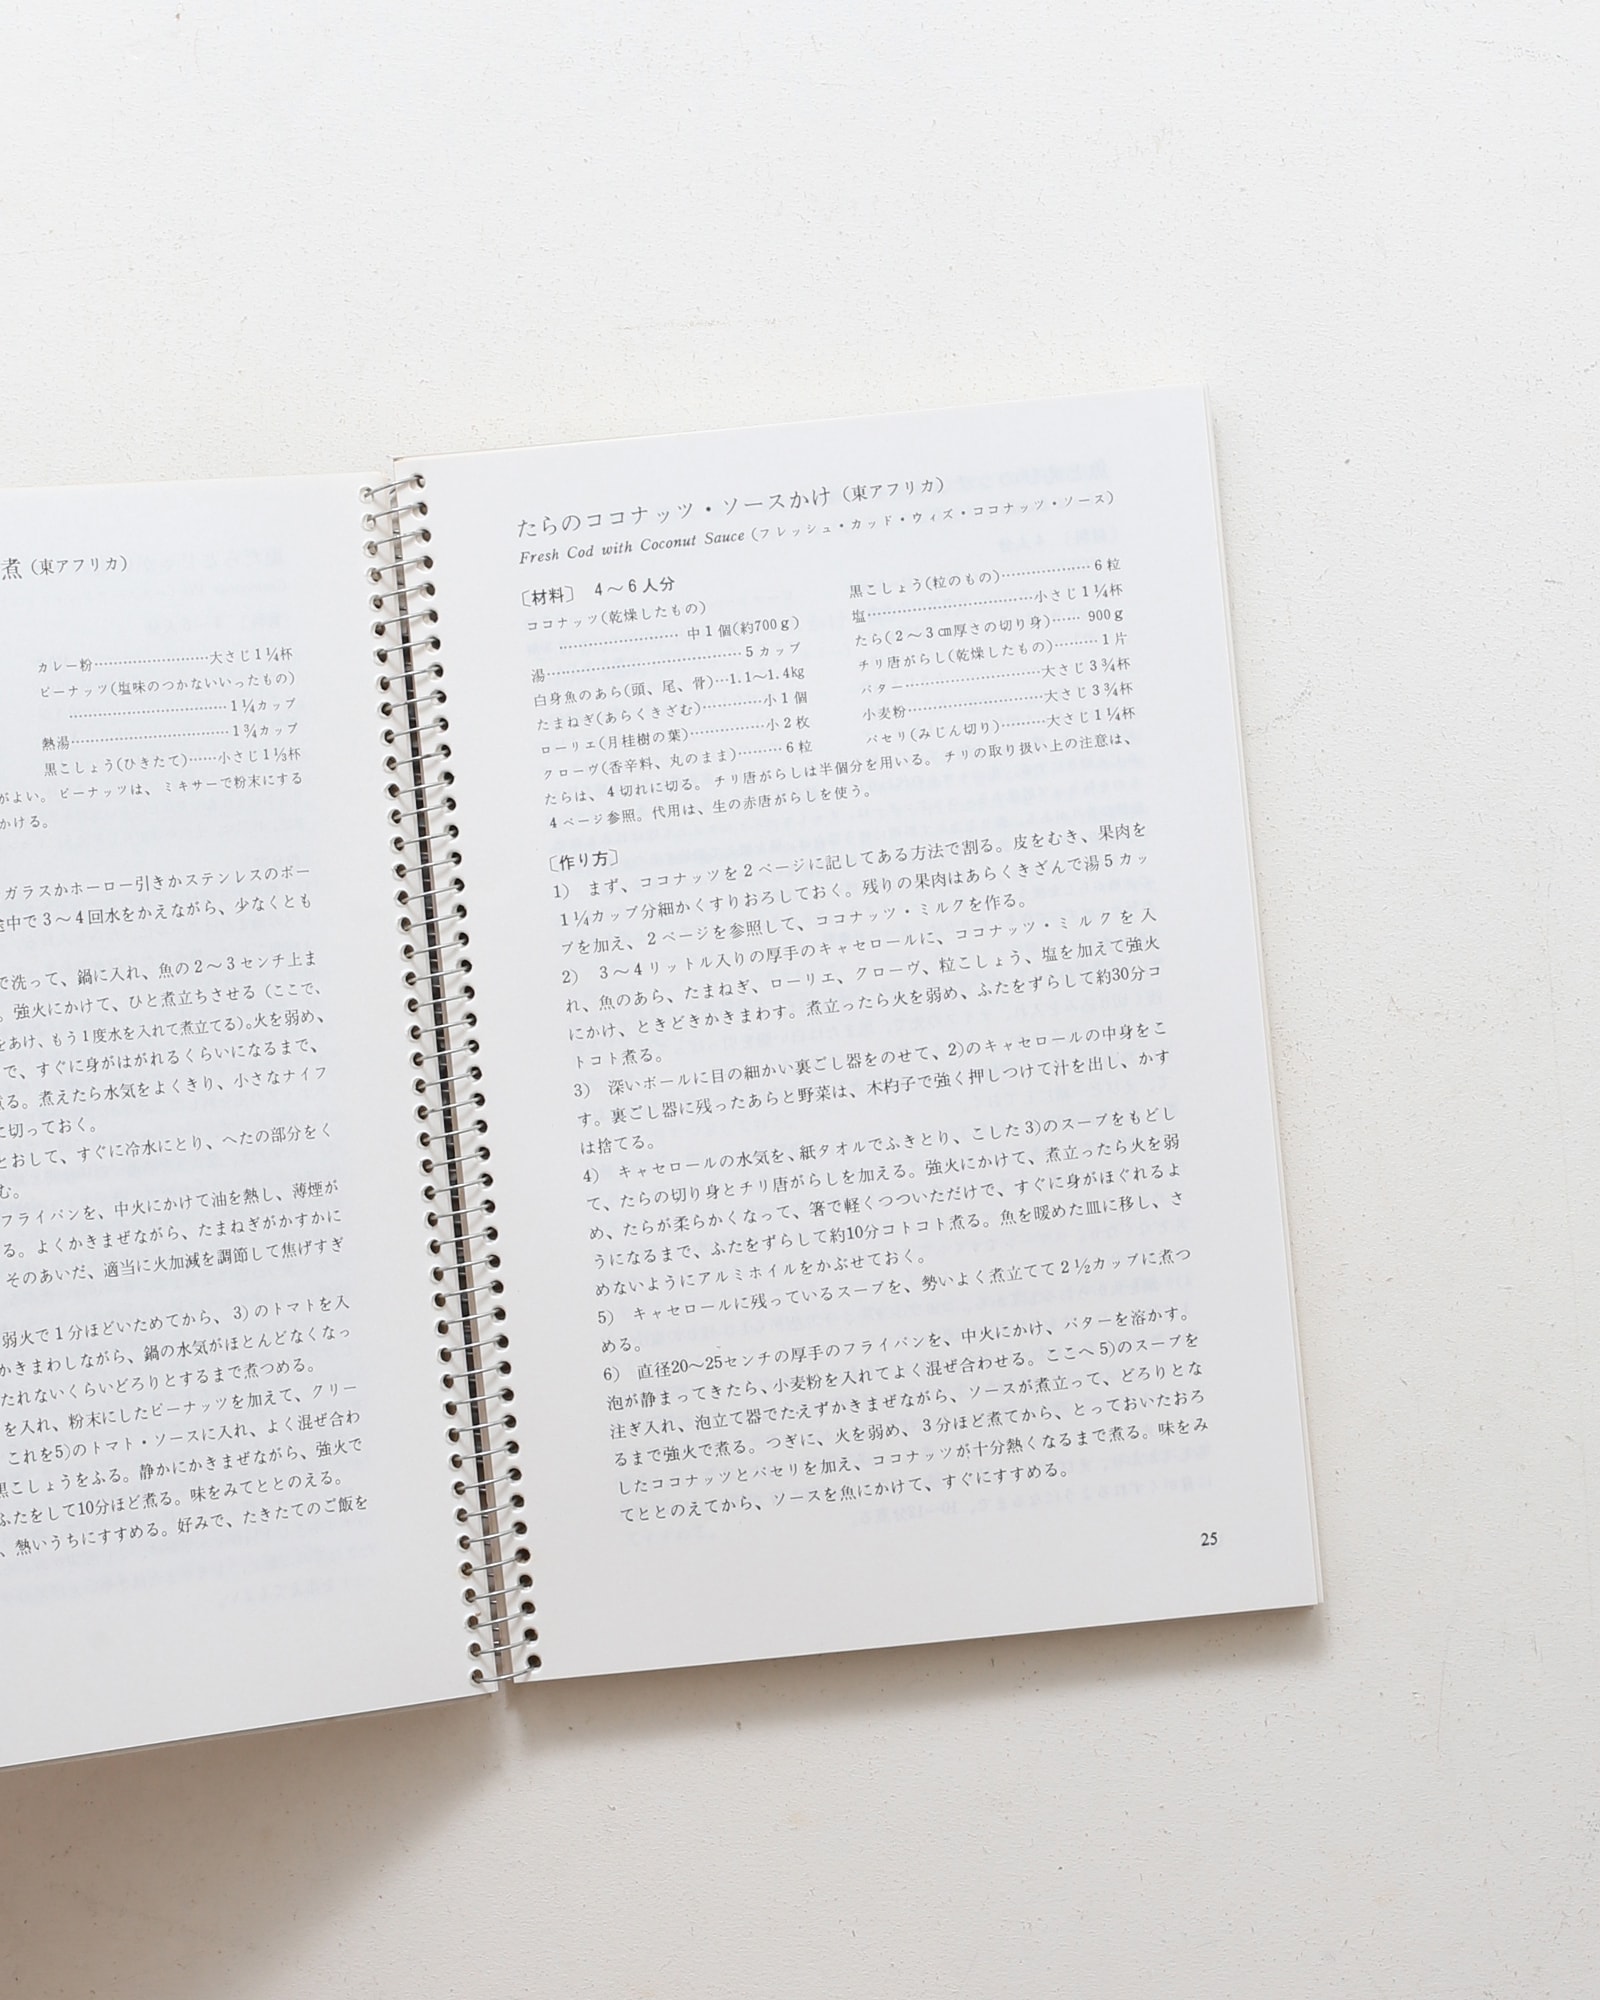 煮（東アフリカ）
カレー粉………………………大さじ1¼杯
ピーナッツ(塩味のつかないいったもの)
………………………………1¼カップ
熱湯………………………………1¾カップ
黒こしょう(ひきたて)……小さじ1⅓杯
がよい。ピーナッツは、ミキサーで粉末にする
かける。
ガラスかホーロー引きかステンレスのボー
途中で3〜4回水をかえながら、少なくとも
で洗って、鍋に入れ、魚の2〜3センチ上ま
。強火にかけて、ひと煮立ちさせる（ここで、
をあけ、もう1度水を入れて煮立てる)。火を弱め、
で、すぐに身がはがれるくらいになるまで、
煮る。煮えたら水気をよくきり、小さなナイフ
に切っておく。
とおして、すぐに冷水にとり、へたの部分をく
む。
フライパンを、中火にかけて油を熱し、薄煙が
る。よくかきまぜながら、たまねぎがかすかに
そのあいだ、適当に火加減を調節して焦げすぎ
弱火で1分ほどいためてから、3)のトマトを入
かきまわしながら、鍋の水気がほとんどなくなっ
たれないくらいどろりとするまで煮つめる。
を入れ、粉末にしたピーナッツを加えて、クリー
これを5)のトマト・ソースに入れ、よく混ぜ合わ
黒こしょうをふる。静かにかきまぜながら、強火で
ふたをして10分ほど煮る。味をみてととのえる。
、熱いうちにすすめる。好みで、たきたてのご飯を
たらのココナッツ・ソースかけ（東アフリカ）
Fresh Cod with Coconut Sauce（フレッシュ・カッド・ウィズ・ココナッツ・ソース）
［材料］ 4〜6人分
ココナッツ(乾燥したもの)
………………………中1個(約700g)
湯………………………………………5カップ
白身魚のあら(頭、尾、骨)…1.1〜1.4kg
たまねぎ(あらくきざむ)…………小1個
ローリエ(月桂樹の葉)………………小2枚
クローヴ(香辛料、丸のまま)………6粒
黒こしょう(粒のもの)………………6粒
塩………………………………小さじ1¼杯
たら(2〜3㎝厚さの切り身)…… 900g
チリ唐がらし(乾燥したもの)………1片
バター…………………………大さじ3¾杯
小麦粉…………………………大さじ3¾杯
パセリ(みじん切り)………大さじ1¼杯
たらは、4切れに切る。チリ唐がらしは半個分を用いる。チリの取り扱い上の注意は、
4ページ参照。代用は、生の赤唐がらしを使う。
［作り方］
1) まず、ココナッツを2ページに記してある方法で割る。皮をむき、果肉を
1¼カップ分細かくすりおろしておく。残りの果肉はあらくきざんで湯5カッ
プを加え、2ページを参照して、ココナッツ・ミルクを作る。
2) 3〜4リットル入りの厚手のキャセロールに、ココナッツ・ミルクを入
れ、魚のあら、たまねぎ、ローリエ、クローヴ、粒こしょう、塩を加えて強火
にかけ、ときどきかきまわす。煮立ったら火を弱め、ふたをずらして約30分コ
トコト煮る。
3) 深いボールに目の細かい裏ごし器をのせて、2)のキャセロールの中身をこ
す。裏ごし器に残ったあらと野菜は、木杓子で強く押しつけて汁を出し、かす
は捨てる。
4) キャセロールの水気を、紙タオルでふきとり、こした3)のスープをもどし
て、たらの切り身とチリ唐がらしを加える。強火にかけて、煮立ったら火を弱
め、たらが柔らかくなって、箸で軽くつついただけで、すぐに身がほぐれるよ
うになるまで、ふたをずらして約10分コトコト煮る。魚を暖めた皿に移し、さ
めないようにアルミホイルをかぶせておく。
5) キャセロールに残っているスープを、勢いよく煮立てて2½カップに煮つ
める。
6) 直径20〜25センチの厚手のフライパンを、中火にかけ、バターを溶かす。
泡が静まってきたら、小麦粉を入れてよく混ぜ合わせる。ここへ5)のスープを
注ぎ入れ、泡立て器でたえずかきまぜながら、ソースが煮立って、どろりとな
るまで強火で煮る。つぎに、火を弱め、3分ほど煮てから、とっておいたおろ
したココナッツとパセリを加え、ココナッツが十分熱くなるまで煮る。味をみ
てととのえてから、ソースを魚にかけて、すぐにすすめる。
25